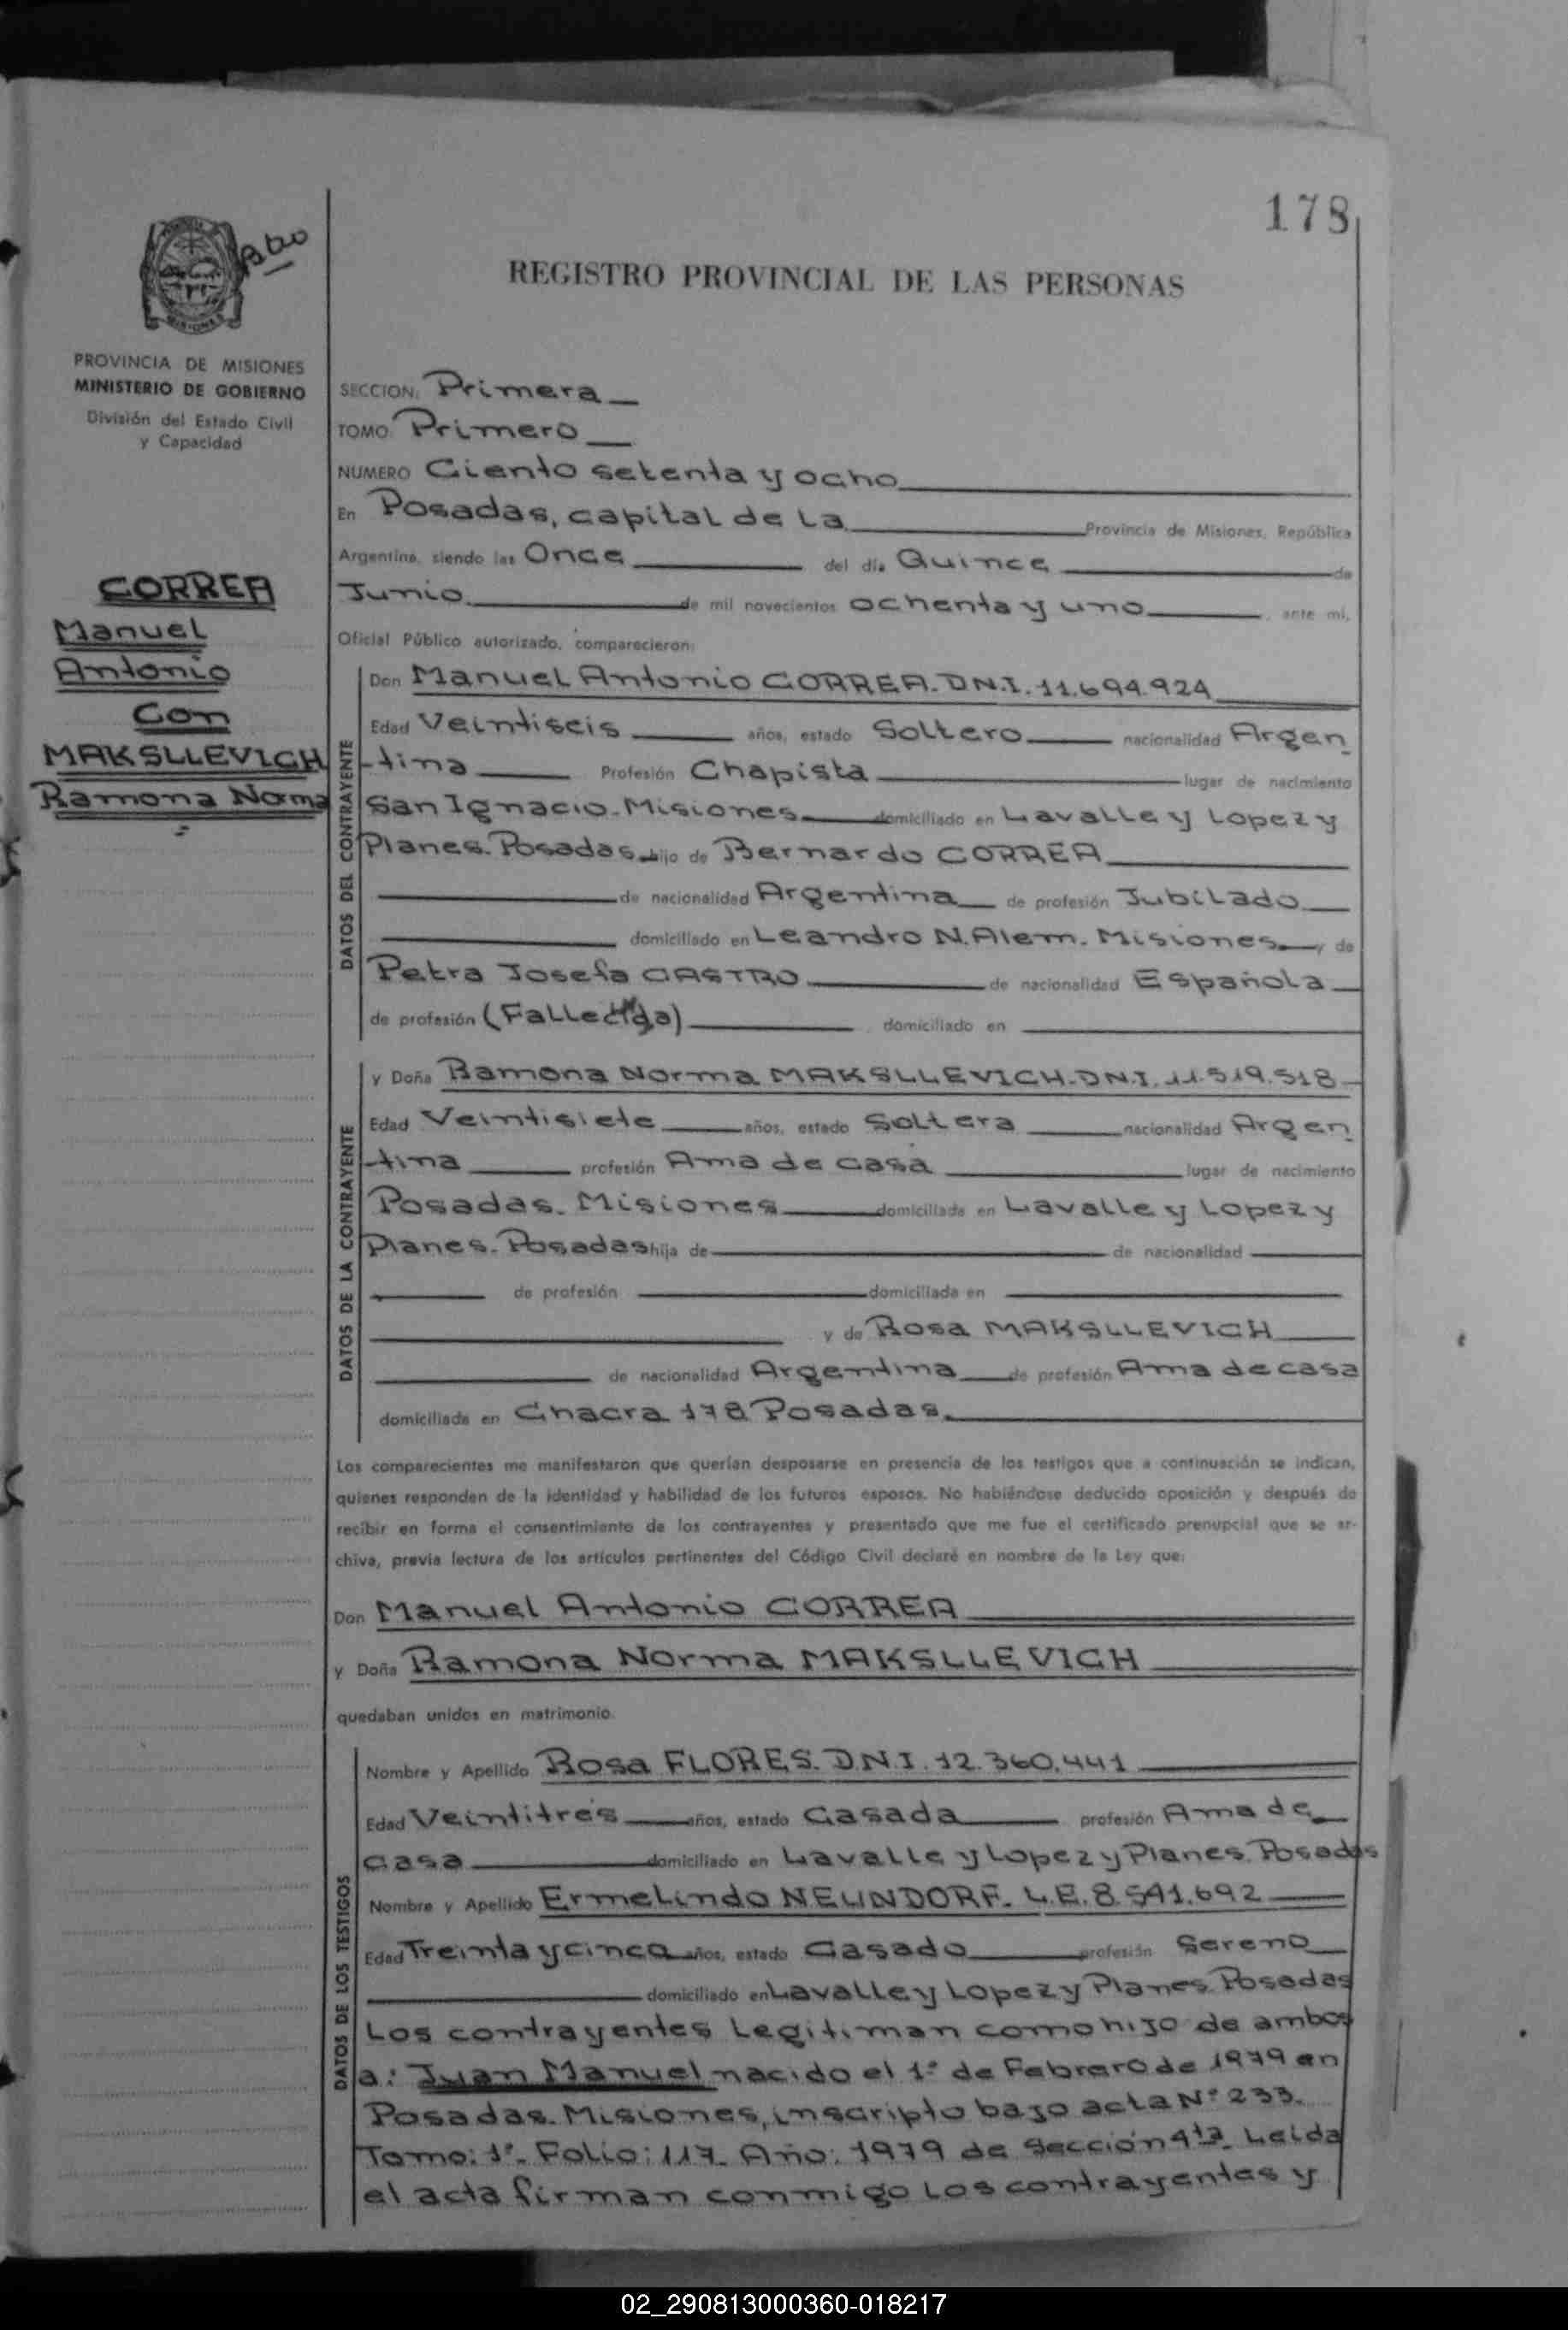 178
REGISTRO PROVINCIAL DE LAS PERSONAS
MISIONES
PROVINCIA DE MISIONES
MINISTERIO DE GOBIERNO
División del Estado Civil
y Capacidad
CORREA
Manuel
Antonio
Con
MAKSLLEVICH
Ramona Norma
SECCION: Primera
TOMO Primero
NUMERO Ciento setenta y ocho
En Posadas, capital de La Provincia de Misiones, República
Argentina, siendo las Once del día Quince de
Junio de mil novecientos ochenta y uno, ante mí,
Oficial Público autorizado, comparecieron:
DATOS DEL CONTRAYENTE
Don Manuel Antonio CORREA. D.N.I. 11.694.924
Edad Veintiseis años, estado Soltero nacionalidad Argen
tina Profesión Chapista lugar de nacimiento
San Ignacio-Misiones domiciliado en Lavalle y Lopez y
Planes. Posadas hijo de Bernardo CORREA
de nacionalidad Argentina de profesión Jubilado
domiciliado en Leandro N. Alem. Misiones y de
Petra Josefa CASTRO de nacionalidad Española
de profesión (Fallecida) domiciliado en
DATOS DE LA CONTRAYENTE
y Doña Ramona Norma MAKSLLEVICH-D.N.I. 11.519.518
Edad Veintisiete años, estado Soltera nacionalidad Argen
tina profesión Ama de casa lugar de nacimiento
Posadas. Misiones domiciliada en Lavalle y Lopez y
Planes. Posadas hija de de nacionalidad
de profesión domiciliada en
y de Rosa MAKSLLEVICH
de nacionalidad Argentina de profesión Ama de casa
domiciliada en Chacra 178 Posadas.
Los comparecientes me manifestaron que querían desposarse en presencia de los testigos que a continuación se indican,
quienes responden de la identidad y habilidad de los futuros esposos. No habiéndose deducido oposición y después de
recibir en forma el consentimiento de los contrayentes y presentado que me fue el certificado prenupcial que se ar-
chiva, previa lectura de los artículos pertinentes del Código Civil declaré en nombre de la Ley que:
Don Manuel Antonio CORREA
y Doña Ramona Norma MAKSLLEVICH
quedaban unidos en matrimonio.
DATOS DE LOS TESTIGOS
Nombre y Apellido Rosa FLORES. D.N.I. 12.360.441
Edad Veintitrés años, estado Casada profesión Ama de
casa domiciliado en Lavalle y Lopez y Planes. Posadas
Nombre y Apellido Ermelindo NEUNDORF. L.E. 8.541.692
Edad Treinta y cinco años, estado Casado profesión Sereno
domiciliado en Lavalle y Lopez y Planes Posadas
Los contrayentes Legitiman como hijo de ambos
a: Juan Manuel nacido el 1° de Febrero de 1979 en
Posadas. Misiones, inscripto bajo acta N° 233.
Tomo: 1°- Folio: 117. Año: 1979 de Sección 4ta. Leída
el acta firman conmigo los contrayentes y
02_290813000360-018217